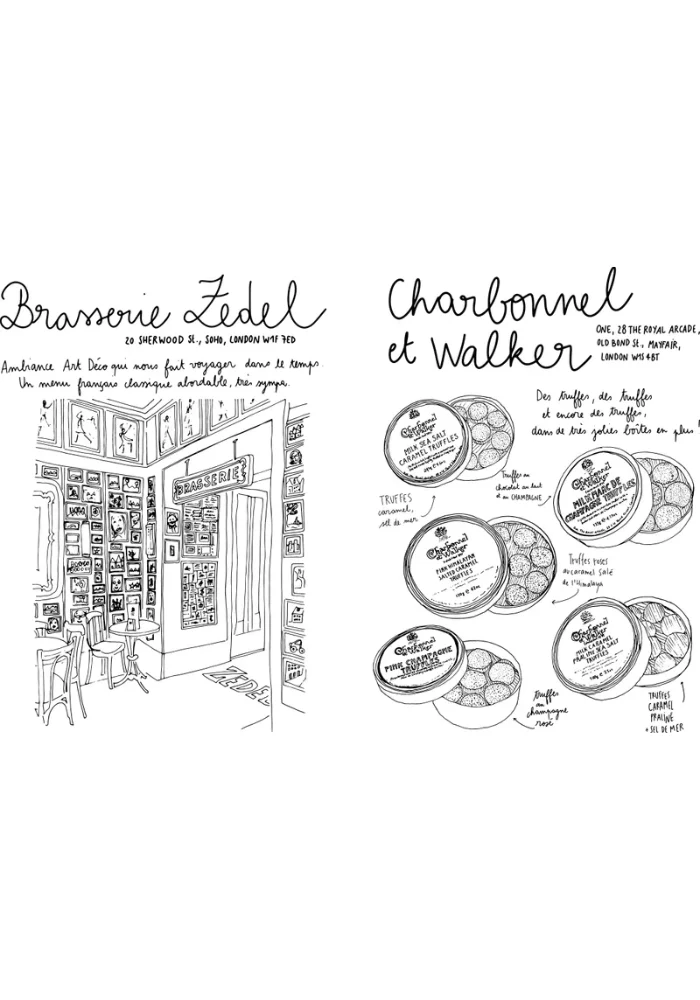 Brasserie Zedel
20 SHERWOOD St., SOHO, LONDON W1F 7ED
Ambiance Art Déco qui nous fait voyager dans le temps.
Un menu français classique abordable, très sympa.
BRASSERIE
ZEDEL
Charbonnel
et Walker
ONE, 28 THE ROYAL ARCADE,
OLD BOND St., MAYFAIR,
LONDON W1S 4BT
Des truffes, des truffes
et encore des truffes,
dans de très jolies boîtes en plus !
Charbonnel
et Walker
MILK SEA SALT
CARAMEL TRUFFLES
Truffes au
chocolat au lait
et au CHAMPAGNE
TRUFFES
caramel,
sel de mer
Charbonnel
et Walker
MILK MARC DE
CHAMPAGNE TRUFFLES
Charbonnel
et Walker
PINK HIMALAYAN
SALTED CARAMEL
TRUFFLES
Truffes roses
au caramel salé
de l'Himalaya
Charbonnel
et Walker
PINK CHAMPAGNE
TRUFFLES
Charbonnel
et Walker
MILK CARAMEL
PRALINE SEA SALT
TRUFFLES
truffes
au
champagne
rose
TRUFFES
CARAMEL
PRALINE
+ SEL DE MER